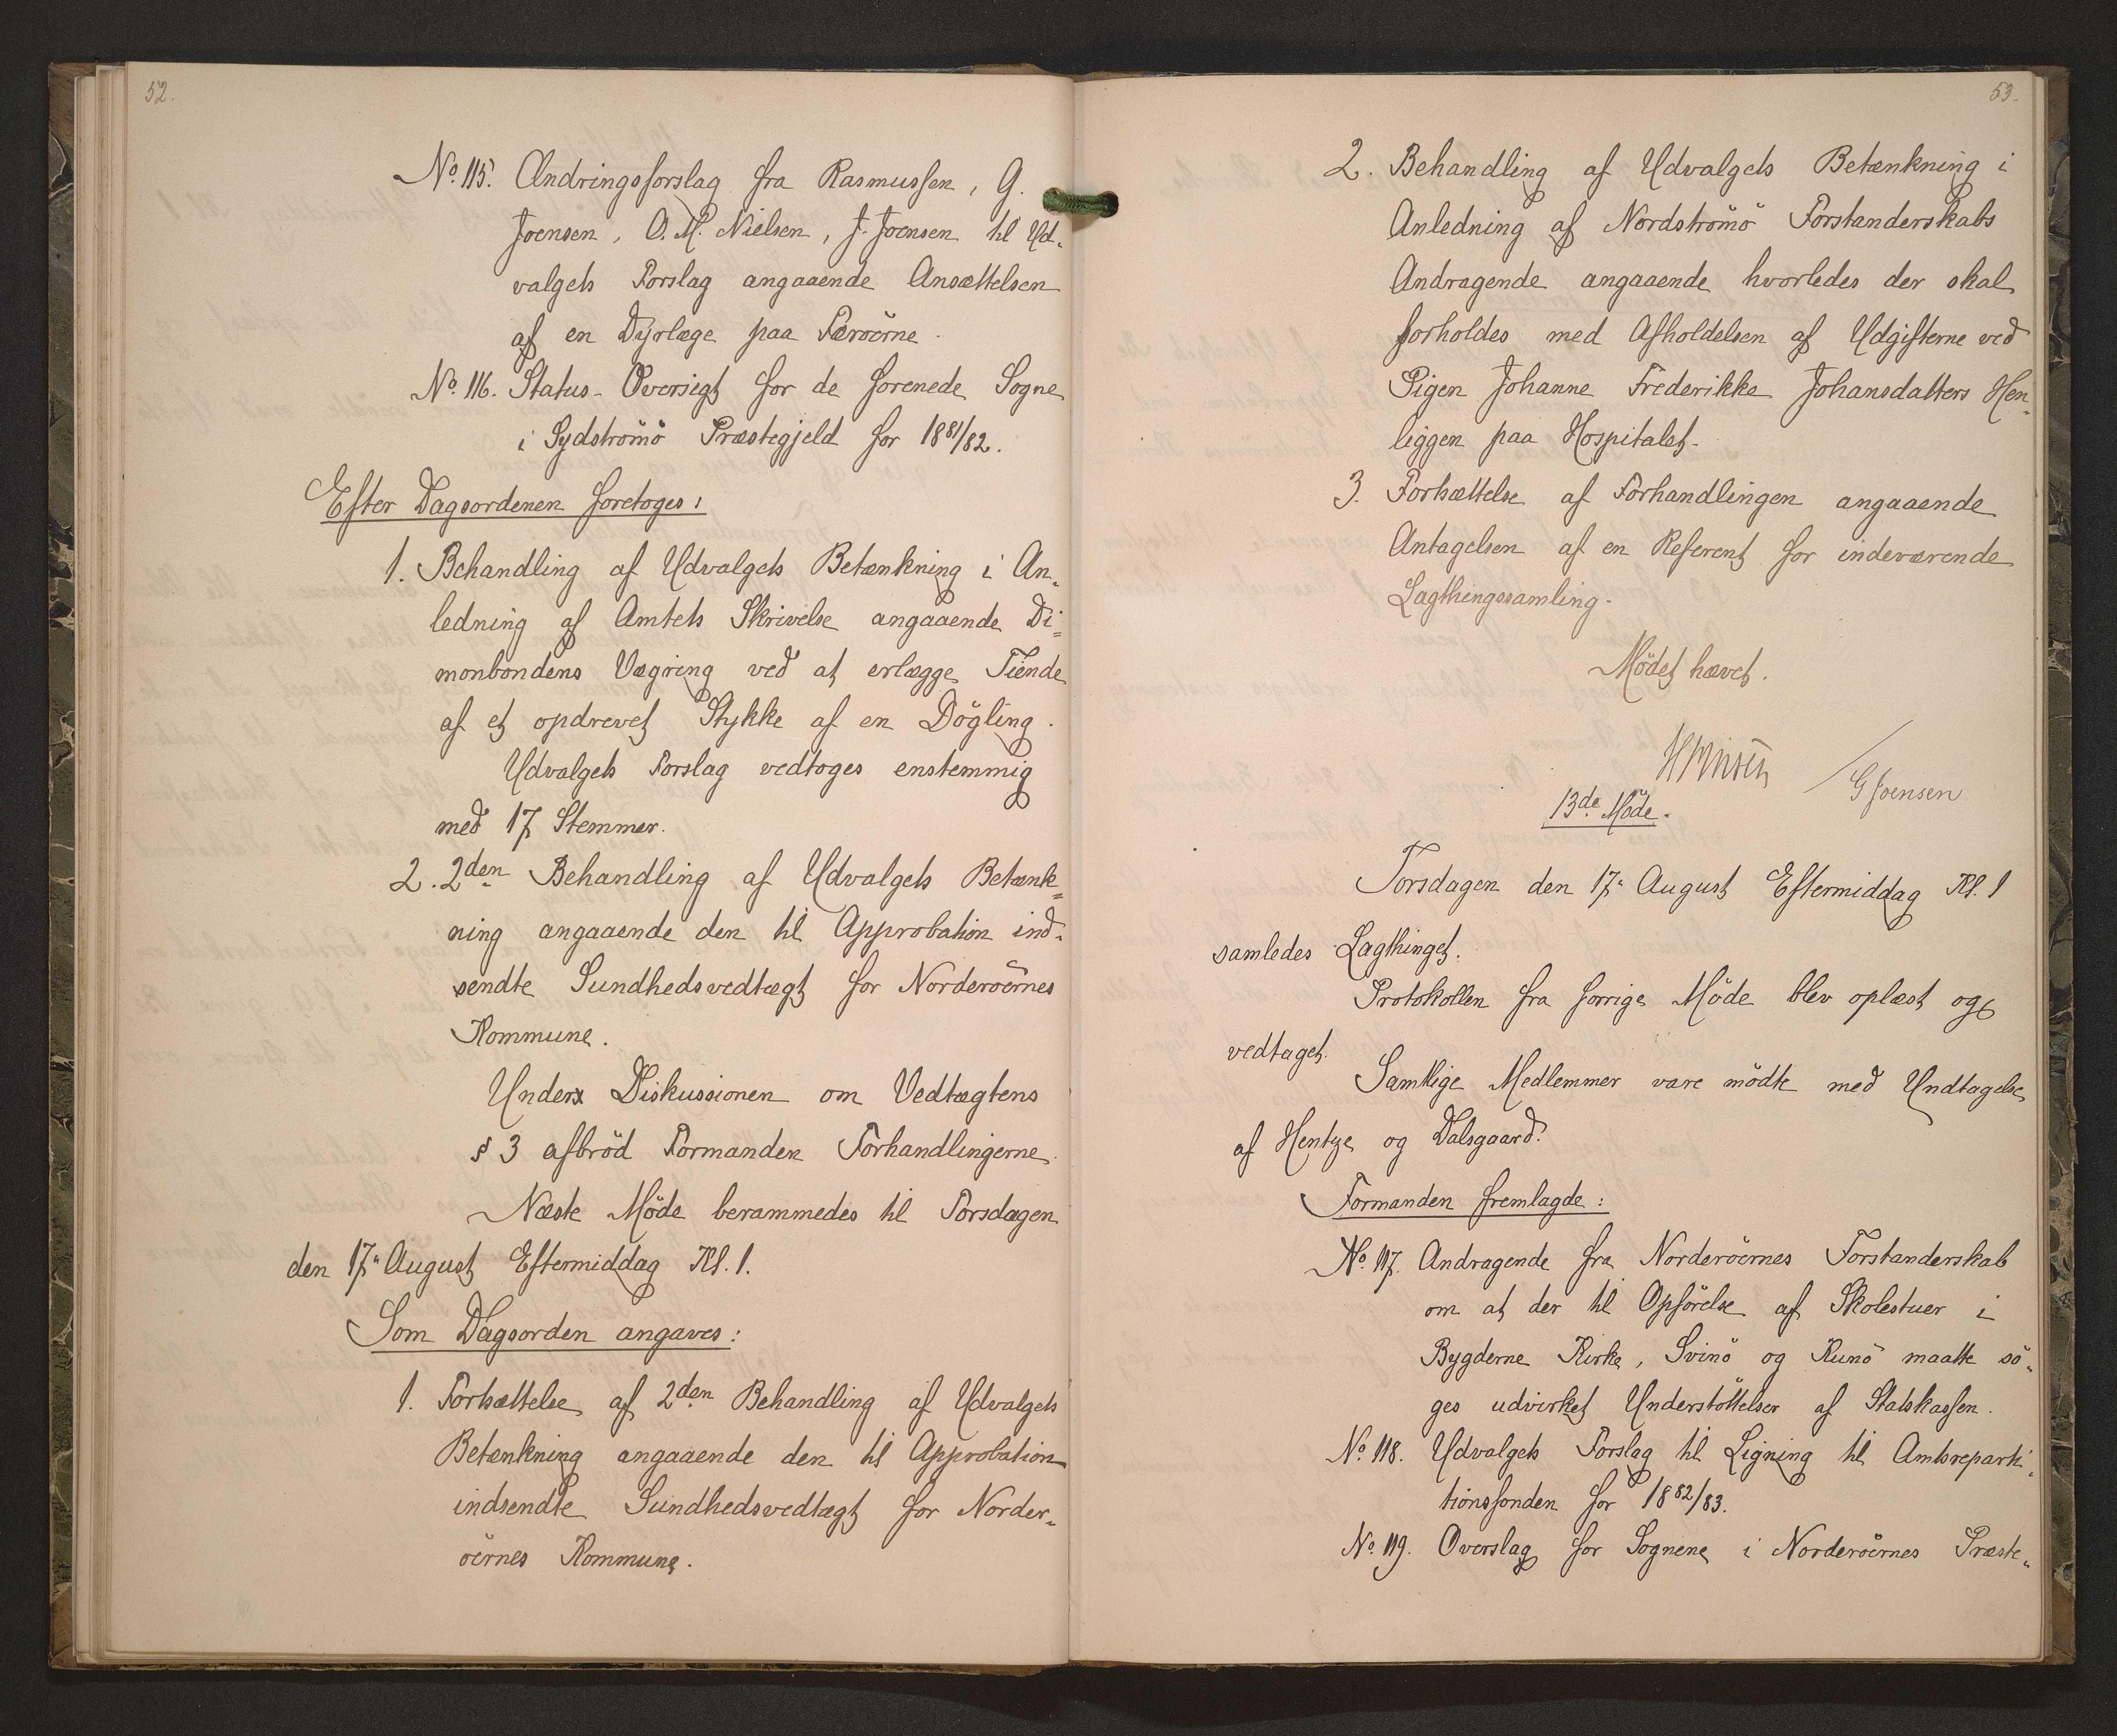 52.
No. 115. Ændringsforslag fra Rasmussen, G.
Joensen, O. M. Nielsen, J. Joensen til Ud-
valgets Forslag angaaende Ansættelsen
af en Dyrlæge paa Færöerne.
No. 116. Status-Oversigt for de forenede Sogne
i Sydströmö Præstegjeld for 1881/82.
Efter Dagsordenen foretoges:
1. Behandling af Udvalgets Betænkning i An-
ledning af Amtets Skrivelse angaaende Di-
monbondens Vægring ved at erlægge Tiende
af et opdrevet Stykke af en Dögling.
Udvalgets Forslag vedtoges enstemmig
med 17 Stemmer.
2. 2den Behandling af Udvalgets Betænk-
ning angaaende den til Approbation ind-
sendte Sundhedsvedtægt for Norderöernes
Kommune.
Under Diskussionen om Vedtægtens
§ 3 afbröd Formanden Forhandlingerne.
Næste Möde berammedes til Torsdagen
den 17" August Eftermiddag Kl. 1.
Som Dagsorden angaves:
1. Fortsættelse af 2den Behandling af Udvalgets
Betænkning angaaende den til Approbation
indsendte Sundhedsvedtægt for Norder-
öernes Kommune.
53.
2. Behandling af Udvalgets Betænkning i
Anledning af Nordströmö Forstanderskabs
Andragende angaaende hvorledes der skal
forholdes med Afholdelsen af Udgifterne ved
Pigen Johanne Frederikke Johansdatters Hen-
liggen paa Hospitalet.
3. Fortsættelse af Forhandlingen angaaende
Antagelsen af en Referent for indeværende
Lagthingssamling.
Mödet hævet.
G Joensen
13de Möde.
Torsdagen den 17" August Eftermiddag Kl. 1
samledes Lagthinget.
Protokollen fra forrige Möde blev oplæst og
vedtaget.
Samtlige Medlemmer vare mödte med Undtagelse
af Hentze og Dalsgaard.
Formanden fremlagde:
No. 117. Andragende fra Norderöernes Forstanderskab
om at der til Opförelse af Skolestuer i
Bygderne Kirke, Svinö og Kunö maatte sö-
ges udvirket Understöttelser af Statskassen.
No. 118. Udvalgets Forslag til Ligning til Amtsreparti-
tionsfonden for 1882/83.
No. 119. Overslag for Sognene i Norderöernes Præste-